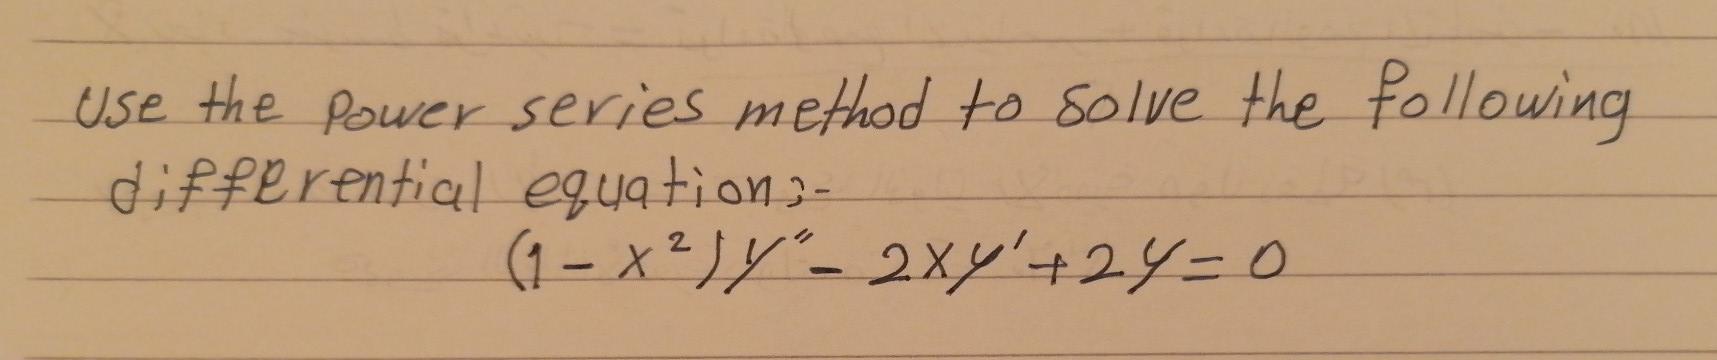 Use the power series method to solve the following
differential equation:-
(1 - x²) y″ - 2xy′ + 2y = 0